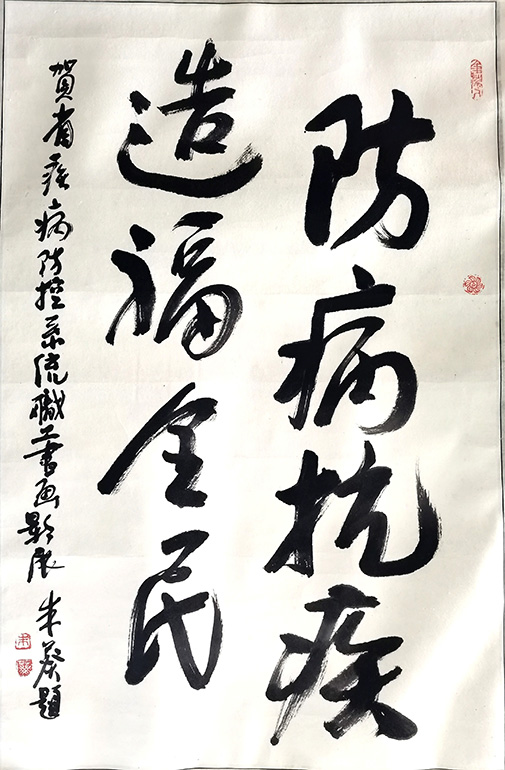 防病抗疾
造福全民
贺省疾病防控系统职工书画影展 朱葵题